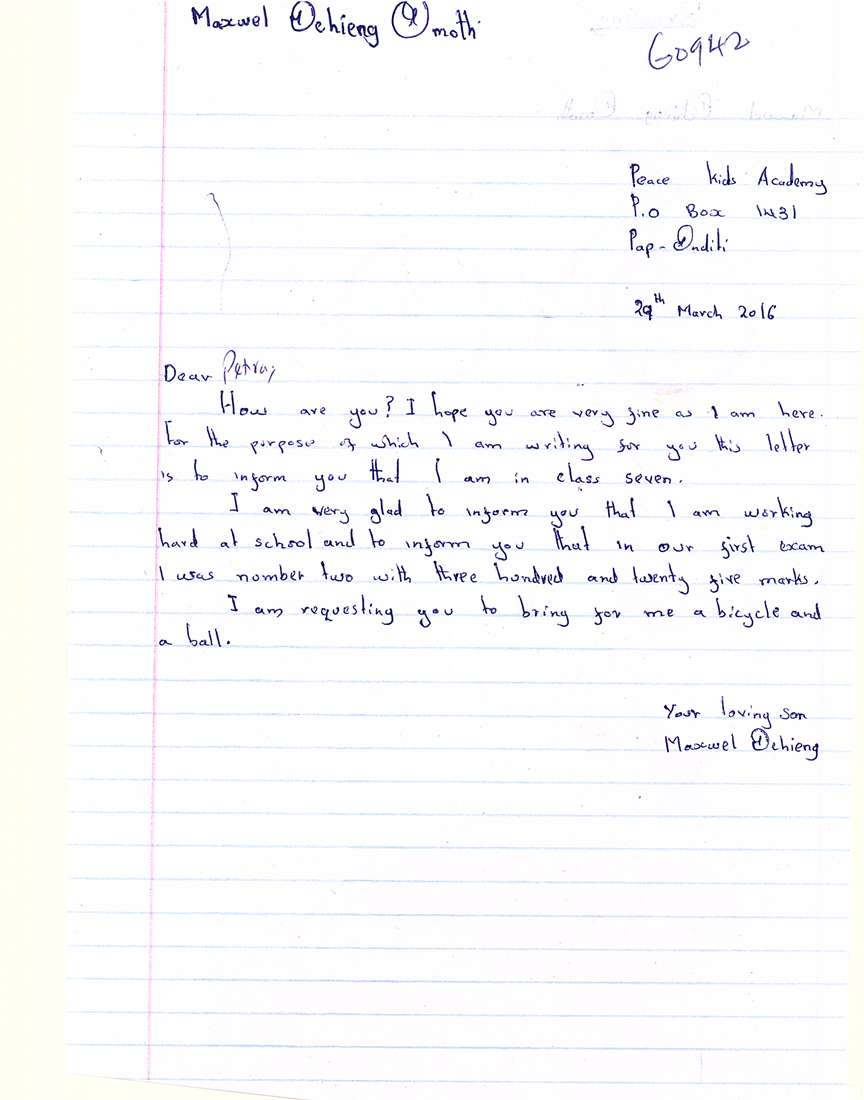 Maxwel Ochieng Omoth
G0942
Peace kids Academy
P.o Box 1431
Pap-Onditi
29th March 2016
Dear Petra,
How are you? I hope you are very fine as I am here.
For the purpose of which I am writing for you this letter
is to inform you that I am in class seven.
I am very glad to inform you that I am working
hard at school and to inform you that in our first exam
I was number two with three hundred and twenty five marks.
I am requesting you to bring for me a bicycle and
a ball.
Your loving son
Maxwel Ochieng